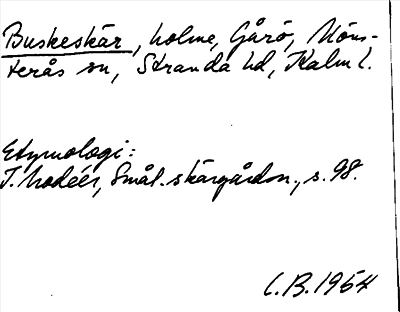 Buskeskär, holme, Gårö, Möns-
terås sn, Stranda hd, Kalm l.
Etymologi:
T. Modéer, Smål. skärgårdsn., s. 98.
C.B. 1954